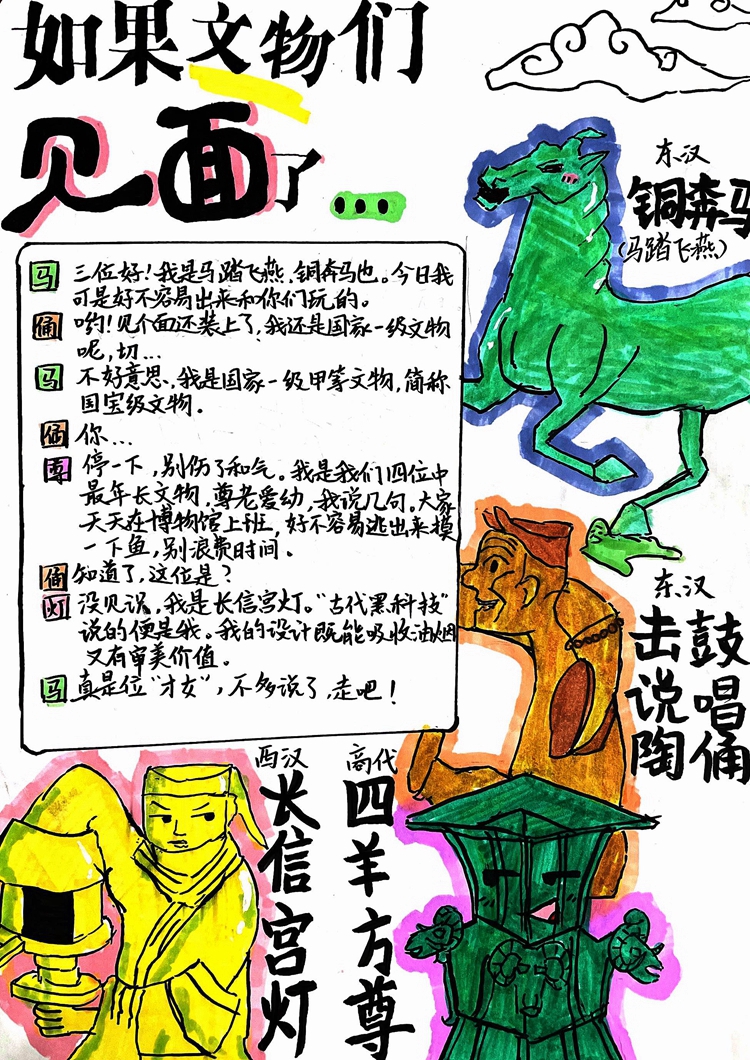 如果文物们
见面了...
马 三位好!我是马踏飞燕、铜奔马也。今日我
可是好不容易出来和你们玩的。
俑 哟!见个面还装上了,我还是国家一级文物
呢,切...
马 不好意思,我是国家一级甲等文物,简称
国宝级文物。
俑 你...
尊 停一下,别伤了和气。我是我们四位中
最年长文物,尊老爱幼,我说几句。大家
天天在博物馆上班,好不容易逃出来摸
一下鱼,别浪费时间。
俑 知道了,这位是?
灯 没见识,我是长信宫灯。“古代黑科技”
说的便是我。我的设计既能吸收油烟
又有审美价值。
马 真是位“才女”,不多说了,走吧!
东汉
铜奔马
(马踏飞燕)
东汉
击鼓
说唱
陶俑
西汉
长信宫灯
商代
四羊方尊